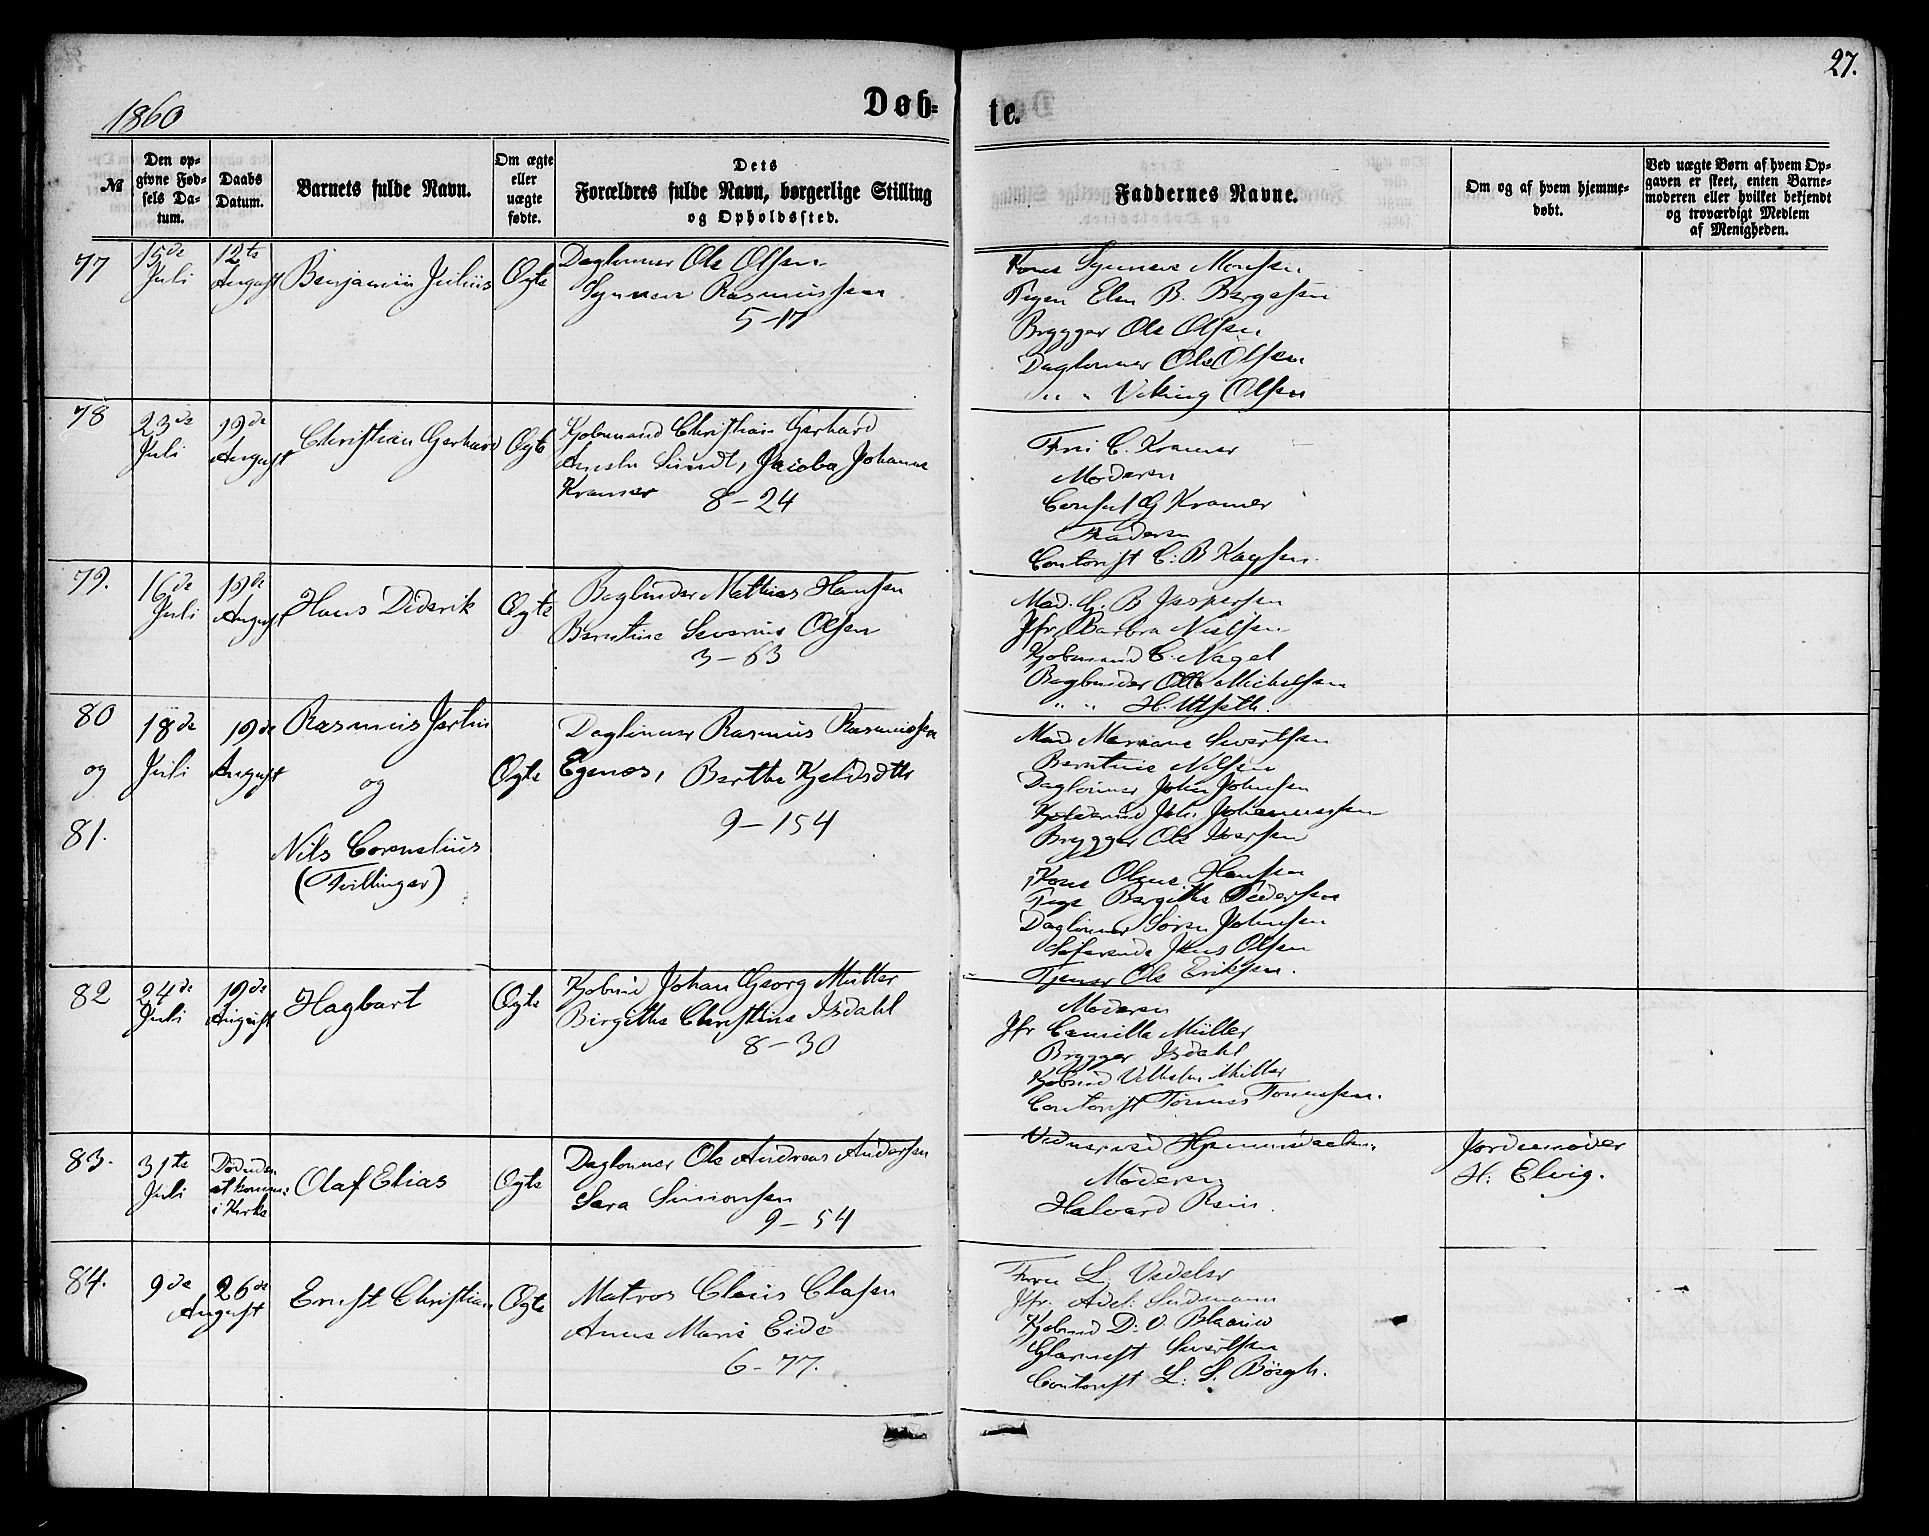 27.
1860
Døb-
te.
№
Den op-
givne Fød-
sels Da-
tum.
Daabs
Datum.
Barnets fulde Navn.
Om ægte
eller
uægte
fødte.
Dets
Forældres fulde Navn, borgerlige Stilling
og Opholdssted.
Faddernes Navne.
Om og af hvem hjemme-
døbt.
Ved uægte Børn af hvem Op-
gaven er skeet, enten Barne-
moderen eller hvilket bekjendt
og troværdigt Medlem
af Menigheden.
77
15de
Juli
12te
August
Benjamin Julius
Ægte
Daglønner Ole Olsen
Synneve Rasmussen
5-17
Kone Synneve Monsen
Pigen Elen B. Bergesen
Brygger Ole Olsen
Daglønner Ole Olsen
" " Viking Olsen
78
23de
Juli
19de
August
Christian Gerhard
Ægte
Kjøbmand Christian Gerhard
Sundt, Jacoba Johanna
Kramer 8-24
Fru C. Kramer
Moderen
Consul G Kramer
Faderen
Contorist C. B Kaysen.
79.
16de
Juli
19de
August
Hans Diderik
Ægte
Bogbinder Mathias Hansen
Berntine Severine Olsen
3-63
Mad. G. B Jespersen
Jfr. Barbra Nielsen
Kjøbmand C. Nagel
Bogbinder Otto Michelsen
" " H.
80
og
81.
18de
Juli
19de
August
Rasmus
og
Nils Cornelius
(Tvillinger)
Ægte
Daglønner Rasmus Rasmussen
Egenes, Berthe Kjeldsdtr
9-154
Mad Mariane Sivertsen
Berntine Nilsen
Daglønner John Johnsen
Kjøbmand Joh. Johannessen
Brygger Ole Iversen
Kone Olene Hansen
Pige Bergitte Pedersen
Daglønner Søren Johnsen
Søfarende Jens Olsen
Tjener Ole Eriksen.
82
24de
Juli
19de
August
Hagbart
Ægte
Kjøbmd Johan Georg Müller
Birgitte Christine Isdahl
8-30
Moderen
Jfr Camilla Müller
Brygger Isdahl
Kjøbmd Vilhelm Müller
Contorist Tønnes Tønnesen.
83.
31te
Juli
Død uden
at komme
i Kirke
Olaf Elias
Ægte
Daglønner Ole Andreas Andersen
Sara Simonsen
9-54
Vidner ved Hjemmedaaben.
Moderen
Halvard
Jordemoder
H. Elvig.
84.
9de
26de
August
Ernst Christian
Ægte
Matros Claus Clasen
Anne Marie Eide
6-77.
Fru L. Vedeler
Jfr. Adel. Sudmann
Kjøbmd D. V. Blaauw
Glarmest Sivertsen
Contorist L. S. Børgh.